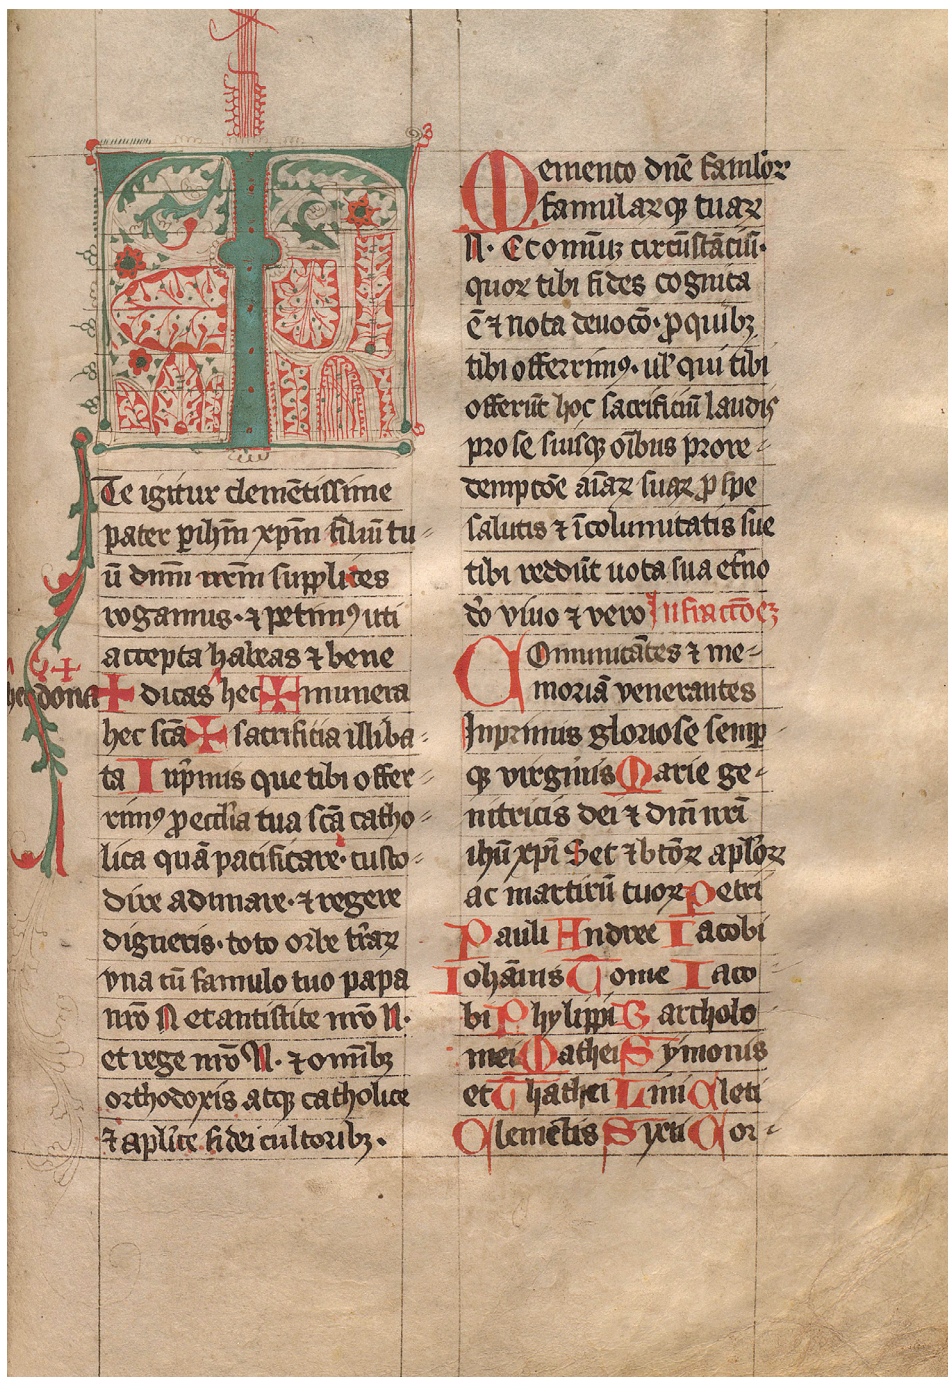 Te igitur clemētissime
pater ꝑ ihm̄ xpm̄ filiū tu⸗
ū dnm̄ nr̄m supplices
rogamus· ⁊ petimꝰ uti
accepta habeas ⁊ bene
hec dona ✠ dicas hec ✠ munera
hec scā ✠ sacrificia illiba⸗
ta Inpͥmis que tibi offer⸗
rimꝰ ꝓ eccl̄ia tua scā catho⸗
lica quā pacificare· custo⸗
dire adunare· ⁊ regere
digneris· toto orbe tr̄arꝝ
vna cū famulo tuo papa
nr̄o N et antistite nr̄o N·
et rege nr̄o N· ⁊ omībꝫ
orthodoxis atqꝫ catholice
⁊ apl̄ice fidei cultoribꝫ·
Memento dn̄e famlorꝝ
famularꝝqꝫ tuarꝝ
N· Et omīuꝫ circūstāciū·
quorꝝ tibi fides cognita
ē ⁊ nota deuocō· ꝓ quibꝫ
tibi offerrimꝰ· ul̓ qui tibi
offerūt hoc sacrificiū laudis
pro se suisqꝫ oībus pro re⸗
dempcōe aīarꝝ suarꝝ ꝓ spe
salutis ⁊ īcolumitatis sue
tibi reddūt uota sua et̓no
dō viuo ⁊ vero Infra acc̄oeꝫ
Cōmunicātes ⁊ me⸗
moriā venerantes
Inprimis gloriose semꝑ
qꝫ virginis Marie ge⸗
nitricis dei ⁊ dn̄i nr̄i
ihū xp̄i Set ⁊ btōrꝝ apl̄orꝝ
ac martirū tuorꝝ Petri
Pauli Andree Iacobi
Iohānis Tome Iaco
bi Phylippi Bartholo
mei Mathei Symonis
et Thathei Lini Cleti
Clemētis Syxti Cor⸗